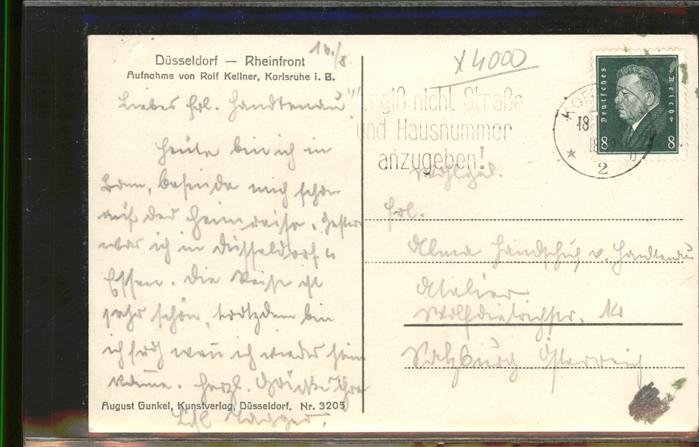 Düsseldorf — Rheinfront
Aufnahme von Rolf Kellner, Karlsruhe i. B.
16./8
Liebes Frl. Handtenau!
Heute bin ich in
Bonn, befinde mich schon
auf der Heimreise. Gestern
war ich in Düsseldorf u
Essen. Die Reise ist
sehr schön, trotzdem bin
ich froh wenn ich wieder heim
komme. Herzl. Grüße Ihre
August Gunkel, Kunstverlag, Düsseldorf. Nr. 3205
x 4000
Vergiß nicht Straße
und Hausnummer
anzugeben!
18
2
Deutsches Reich
8 8
Wohlgeb.
Frl.
Alma Handschuh v. Handtenau
Atelier
Wolfdietrichstr. 14
Salzburg Österreich